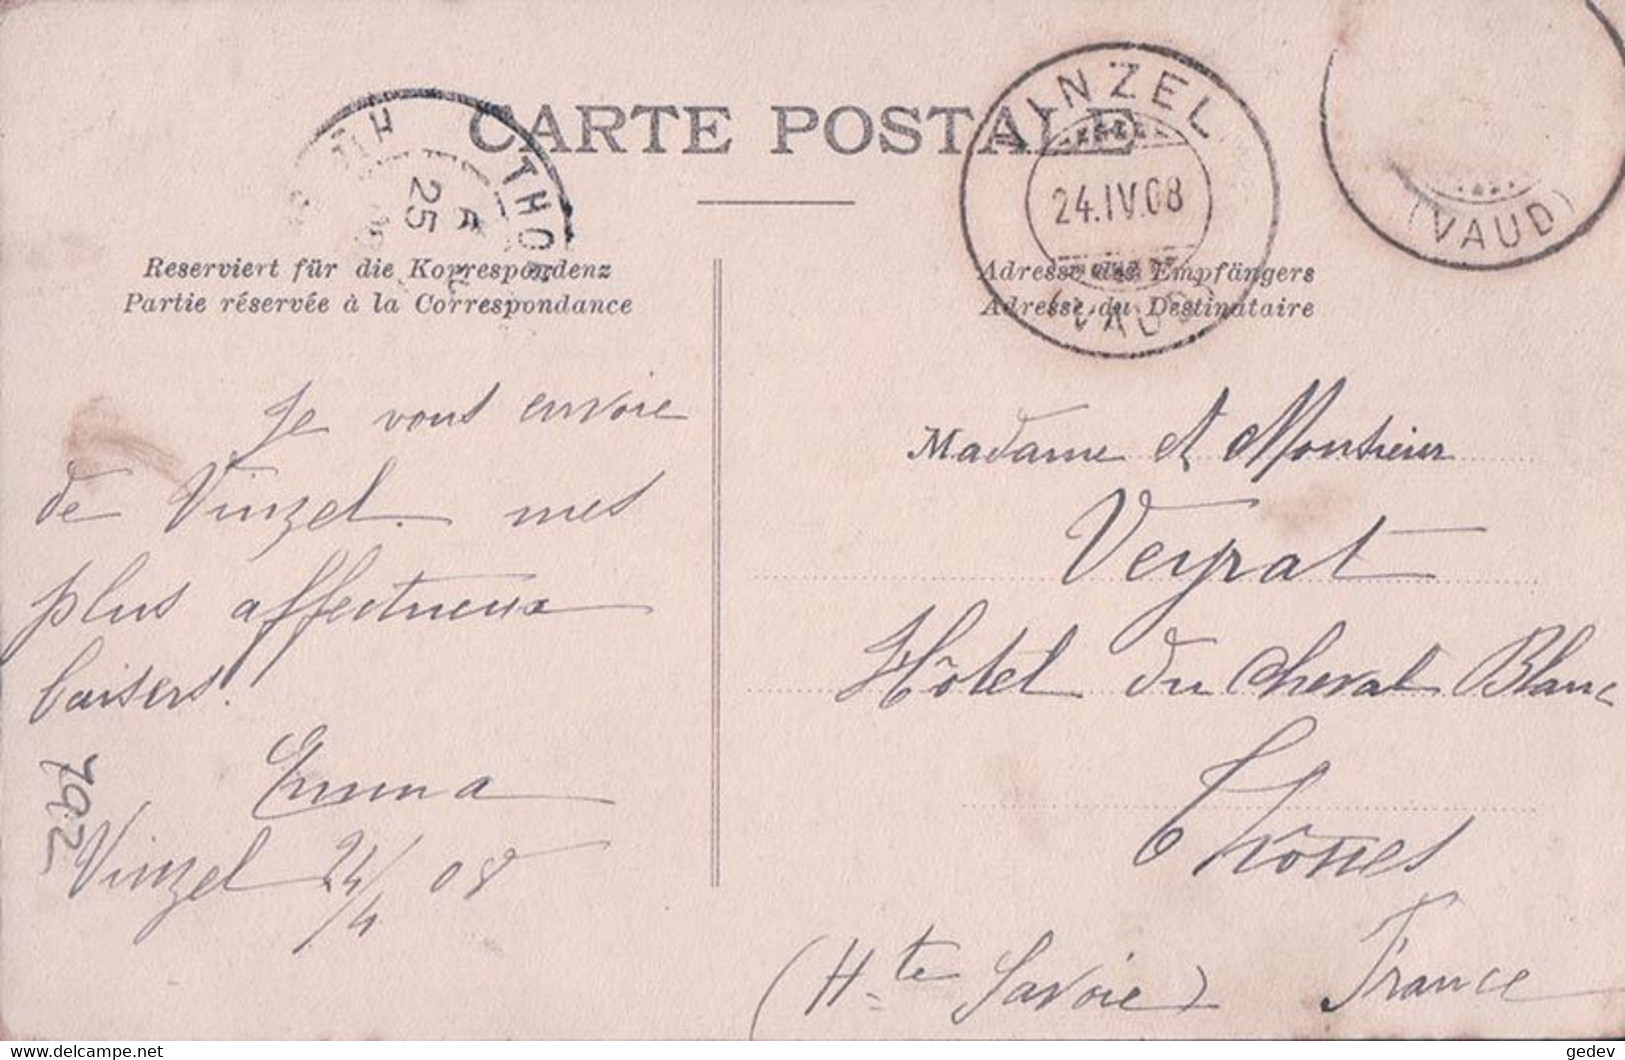 CARTE POSTALE
VINZEL
24.IV.08
(VAUD)
(VAUD)
THO
25
Reserviert für die Korrespondenz
Partie réservée à la Correspondance
Adresse des Empfängers
Adresse du Destinataire
Je vous envoie
de Vinzel mes
plus affectueux
baisers.
Emma
Vinzel 24/4 08
792
Madame et Monsieur
Veyrat
Hôtel du Cheval Blanc
Thônes
(Hte Savoie) France
gedev